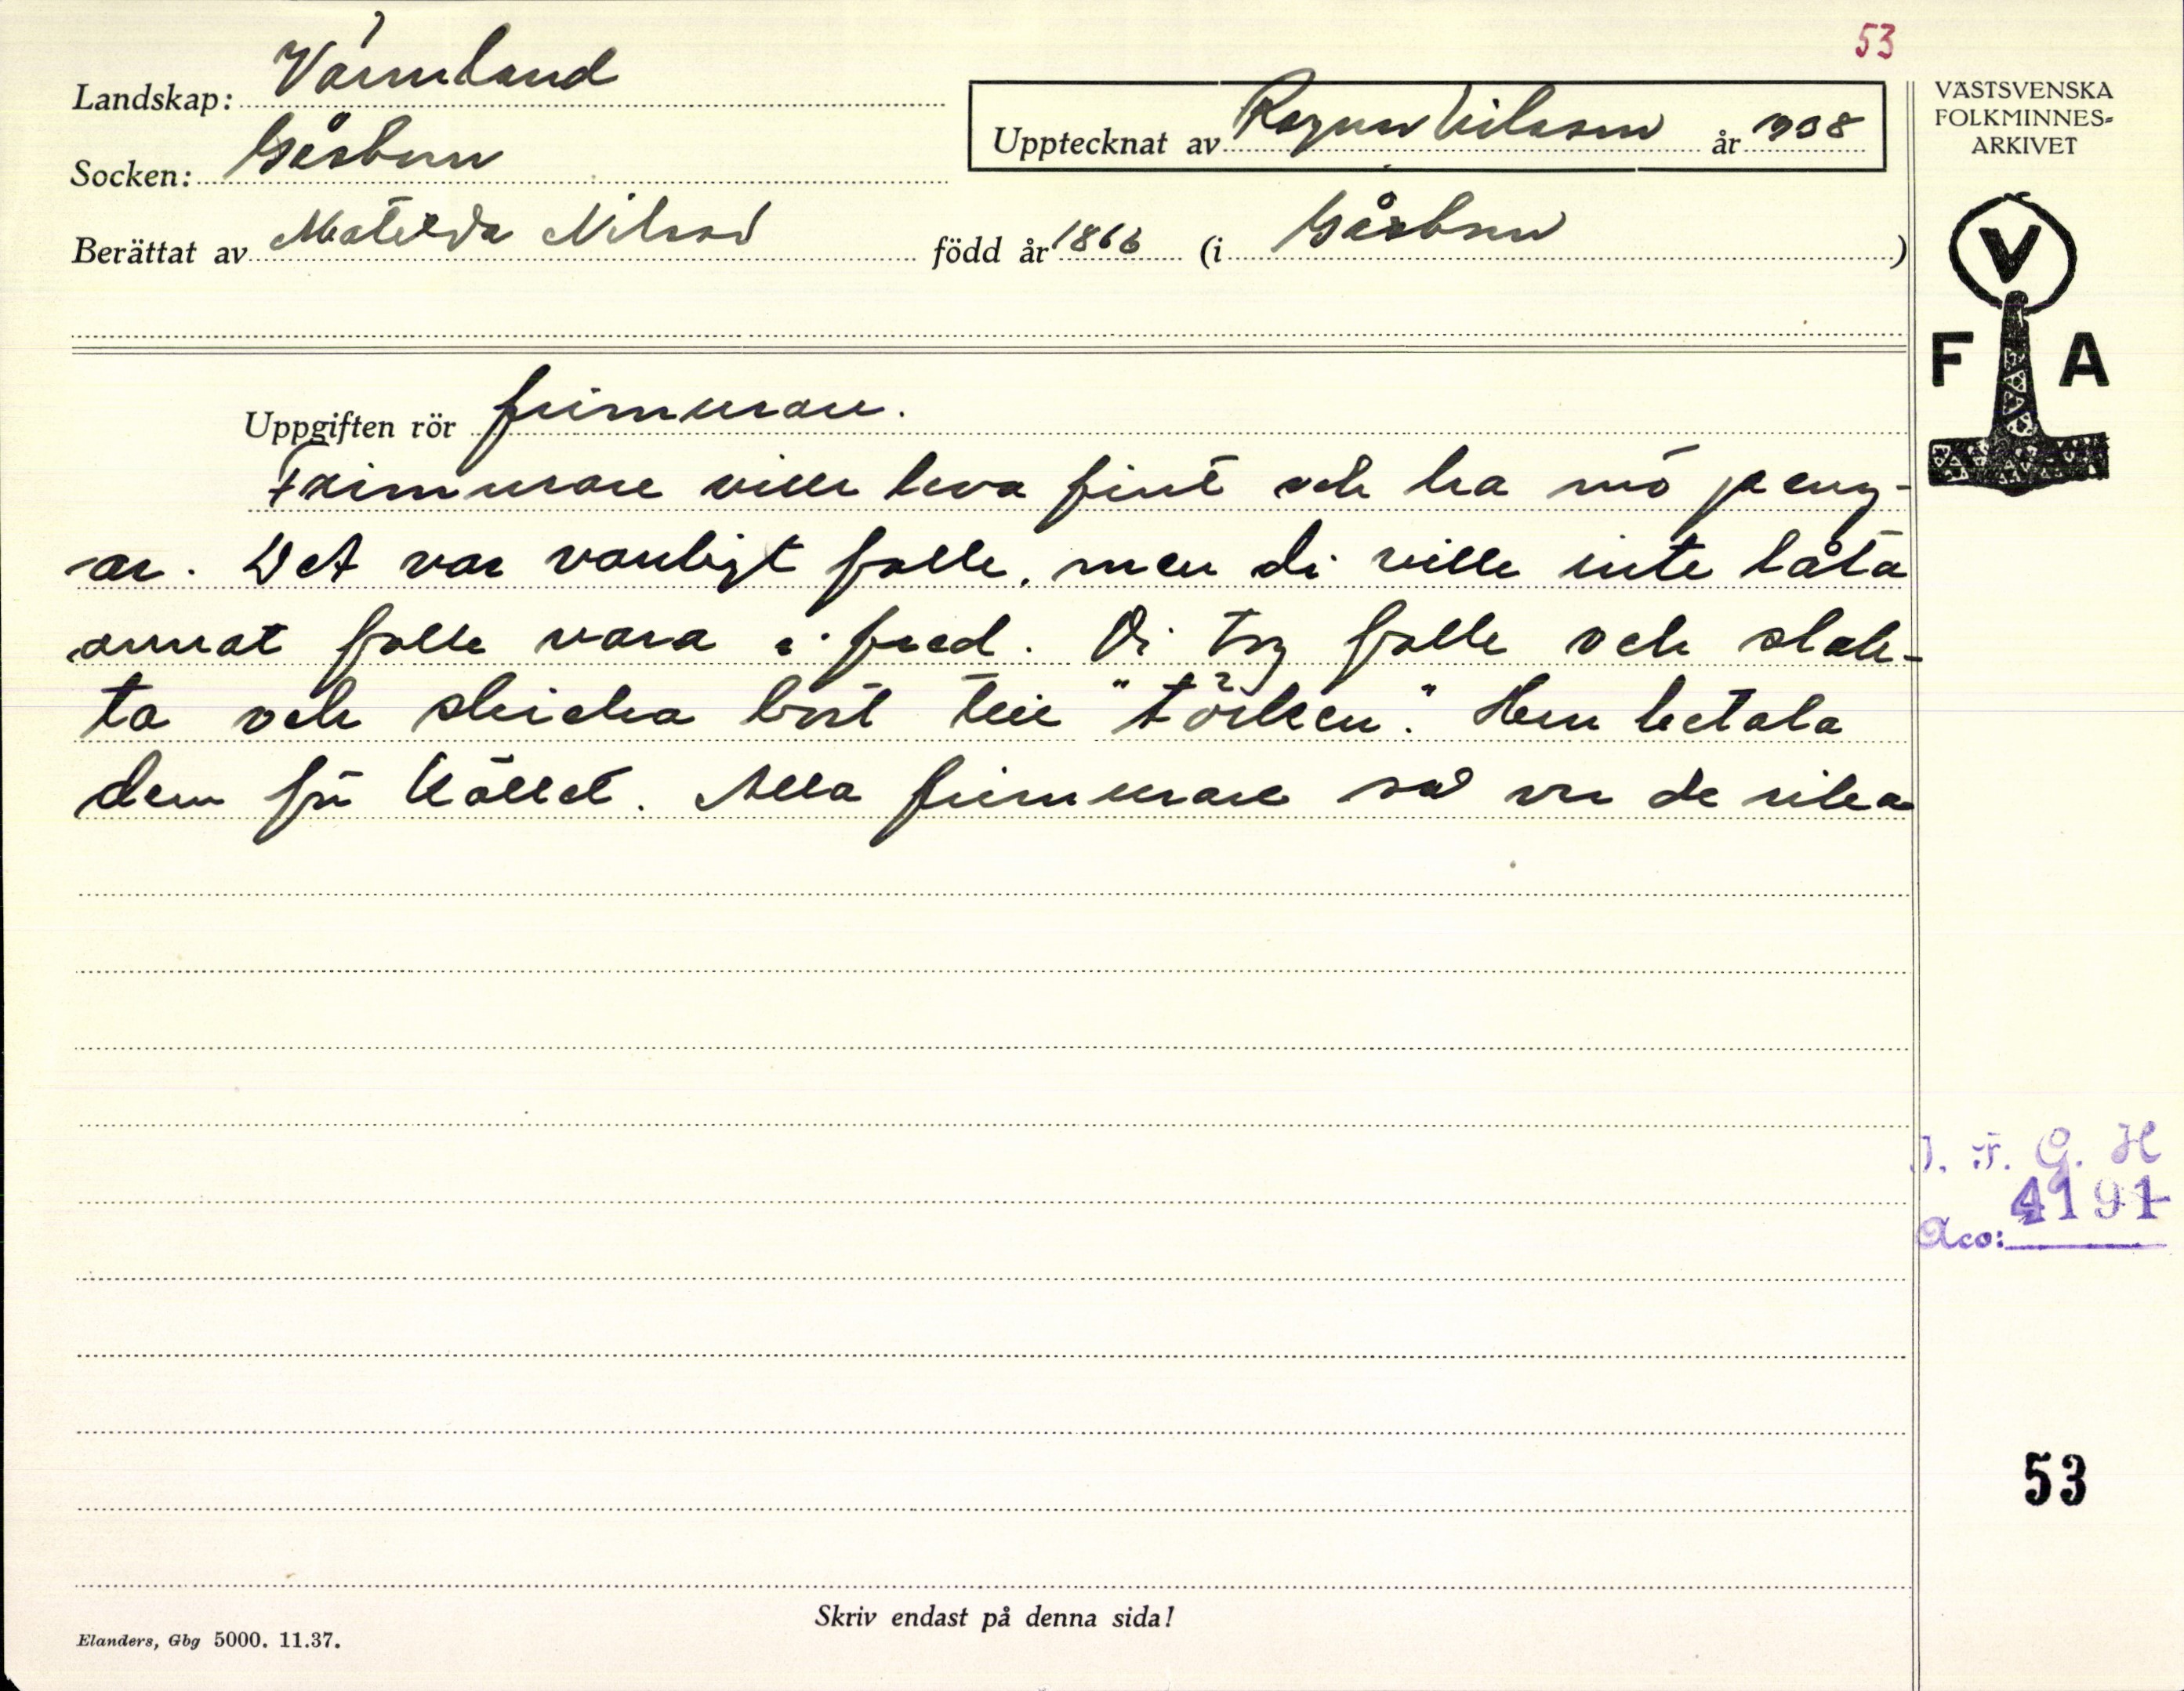 53
Landskap: Värmland
Upptecknat av Ragnar Nilsson år 1938
VÄSTSVENSKA
FOLKMINNES-
ARKIVET
Socken: Gåsborn
Berättat av Matilda Nilsson född år 1866 (i Gåsborn)
V
F A
Uppgiften rör frimurare.
Frimurare ville leva fint och ha mö peng-
ar. Det var vanligt folk, men di ville inte låta
annat folk vara i fred. Di tog folk och slak-
ta och skicka bort till "törken." Hen betala
dem för köttet. Alla frimurare va de rika
I. F. G. H
4191
Acc:
53
Skriv endast på denna sida!
Elanders, Gbg 5000. 11.37.